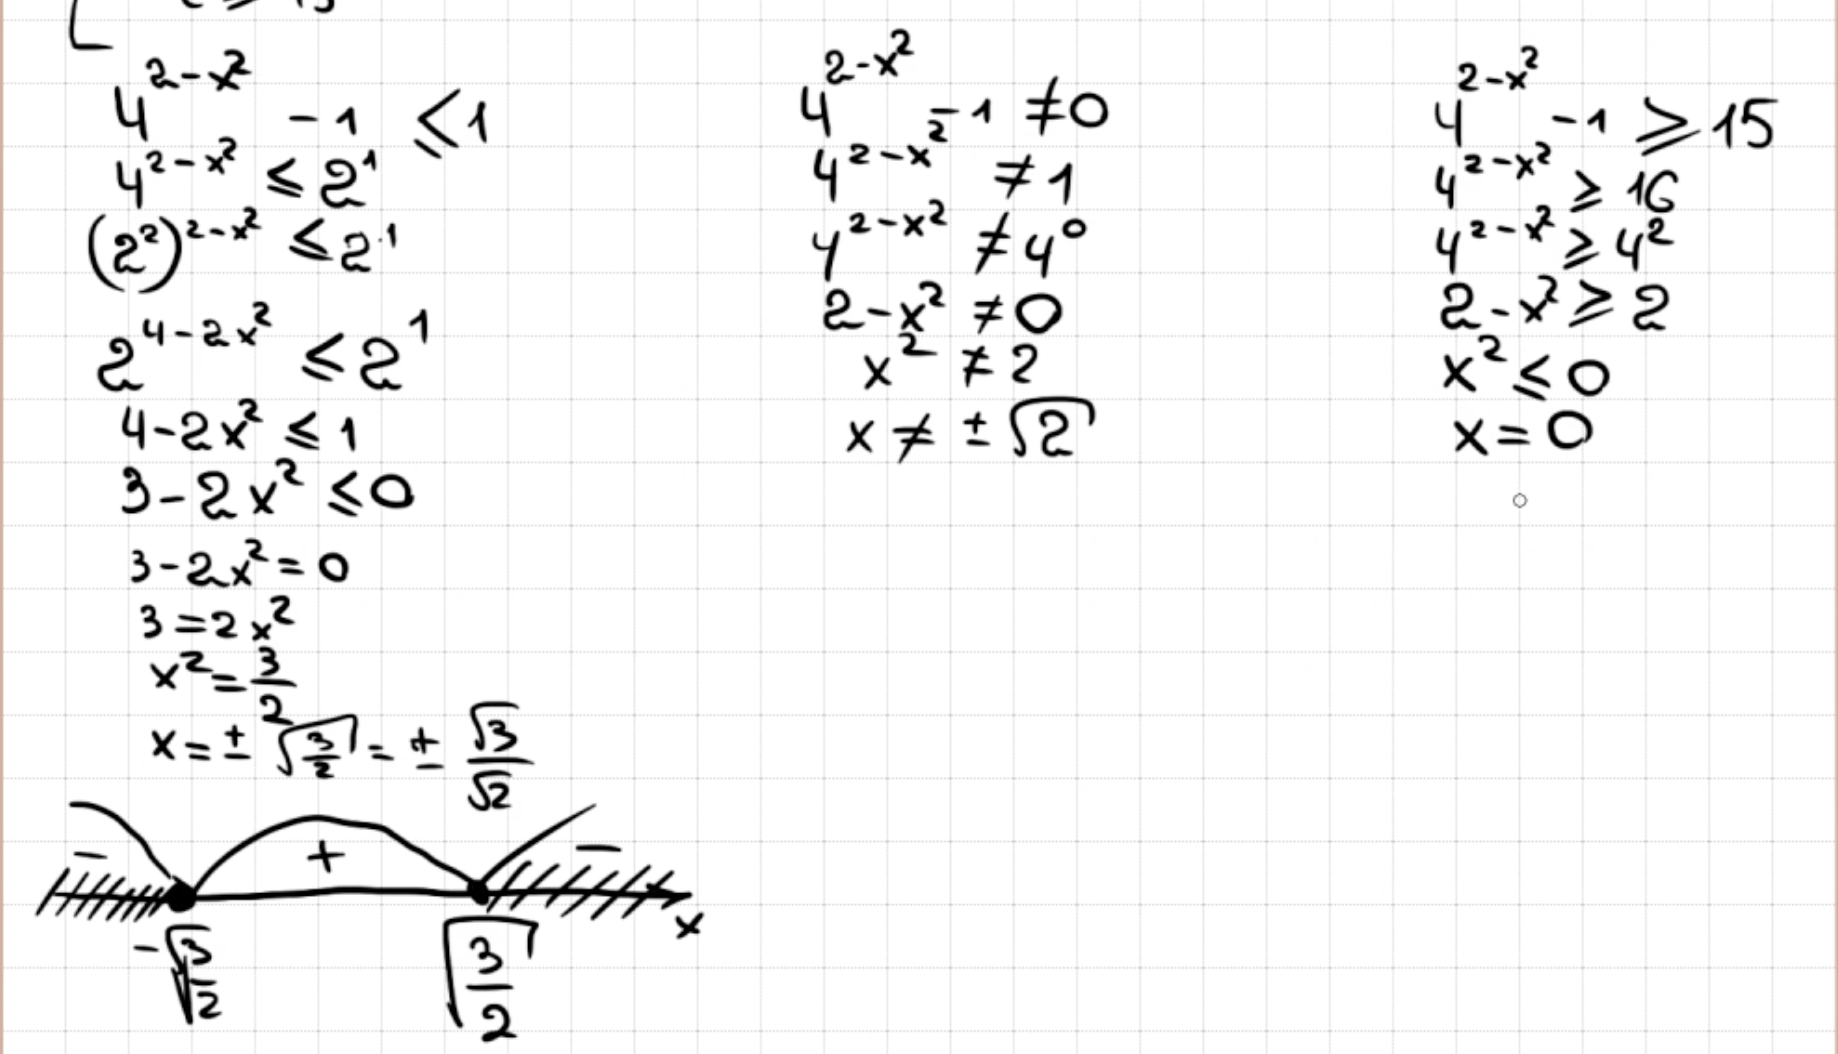 4^{2-x^2} - 1 ≤ 1
4^{2-x^2} ≤ 2^1
(2^2)^{2-x^2} ≤ 2^1
2^{4-2x^2} ≤ 2^1
4-2x^2 ≤ 1
3-2x^2 ≤ 0
3-2x^2 = 0
3 = 2x^2
x^2 = \frac{3}{2}
x = ± \sqrt{\frac{3}{2}} = ± \frac{\sqrt{3}}{\sqrt{2}}
- + -
x
-\sqrt{\frac{3}{2}} \sqrt{\frac{3}{2}}
4^{2-x^2} - 1 ≠ 0
4^{2-x^2} ≠ 1
4^{2-x^2} ≠ 4^0
2-x^2 ≠ 0
x^2 ≠ 2
x ≠ ± \sqrt{2}
4^{2-x^2} - 1 ≥ 15
4^{2-x^2} ≥ 16
4^{2-x^2} ≥ 4^2
2-x^2 ≥ 2
x^2 ≤ 0
x = 0